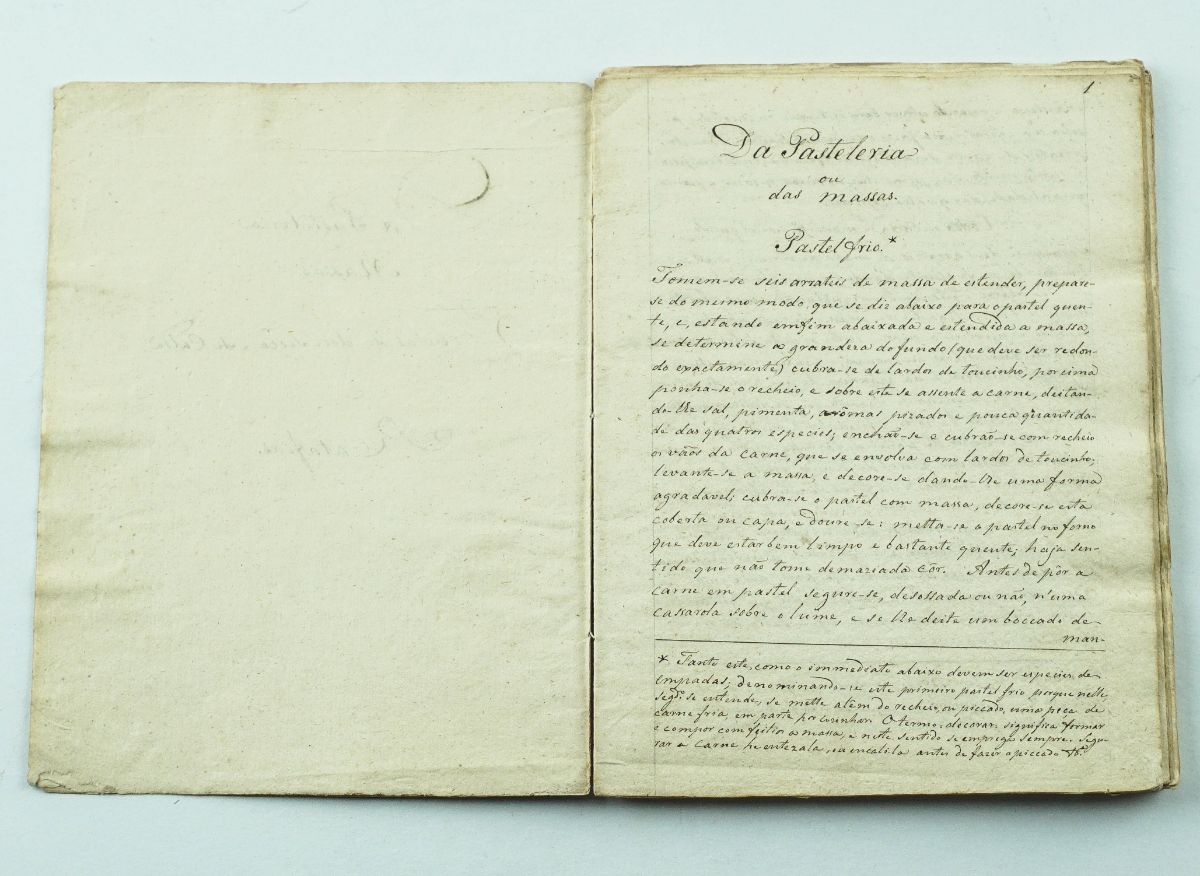 1
Da Pasteleria
ou
das massas.
Pastel frio.*
Tomem-se seis arrateis de massa de estender, prepare-
se do mesmo modo, que se diz abaixo para o pastel quen-
te, e, estando emfim abaixada e estendida a massa,
se determine a grandeza do fundo (que deve ser redon-
do exactamente) cubra-se de lardos de toucinho, por cima
ponha-se o recheio, e sobre este se assente a carne, deitan-
do-lhe sal, pimenta, arômas pizados e pouca quantida-
de das quatros especies; enchaõ-se e cubrão-se com recheio
os vãos da carne, que se envolva com lardos de toucinho;
levante-se a massa, e decore-se dando-lhe uma forma
agradavel; cubra-se o pastel com massa, decore-se esta
coberta ou capa, e doure-se: metta-se o pastel no forno
que deve estar bem limpo e bastante quente; haja sen-
tido que não tome demaziada côr. Antes de pôr a
carne em pastel segure-se, desossada ou não, n'uma
cassarola sobre o lume, e se lhe deite um boccado de
man-
* Tanto este, como o immediato abaixo devem ser especies de
empadas; denominando-se este primeiro pastel frio porque nelle
segdo. se entende, se mette alem do recheio, ou piccado, uma peça de
carne fria, em parte por cozinhar. O termo: decorar: significa formar
e compor com feitios a massa, e neste sentido se emprega sempre. Segu-
rar a carne he entezala, ou encalila antes de fazer o piccado